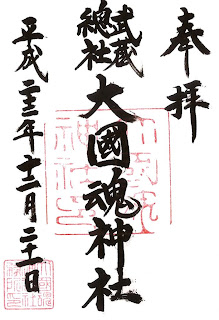 奉拝
武蔵
總社
大國魂神社
平成二十三年十二月二十一日